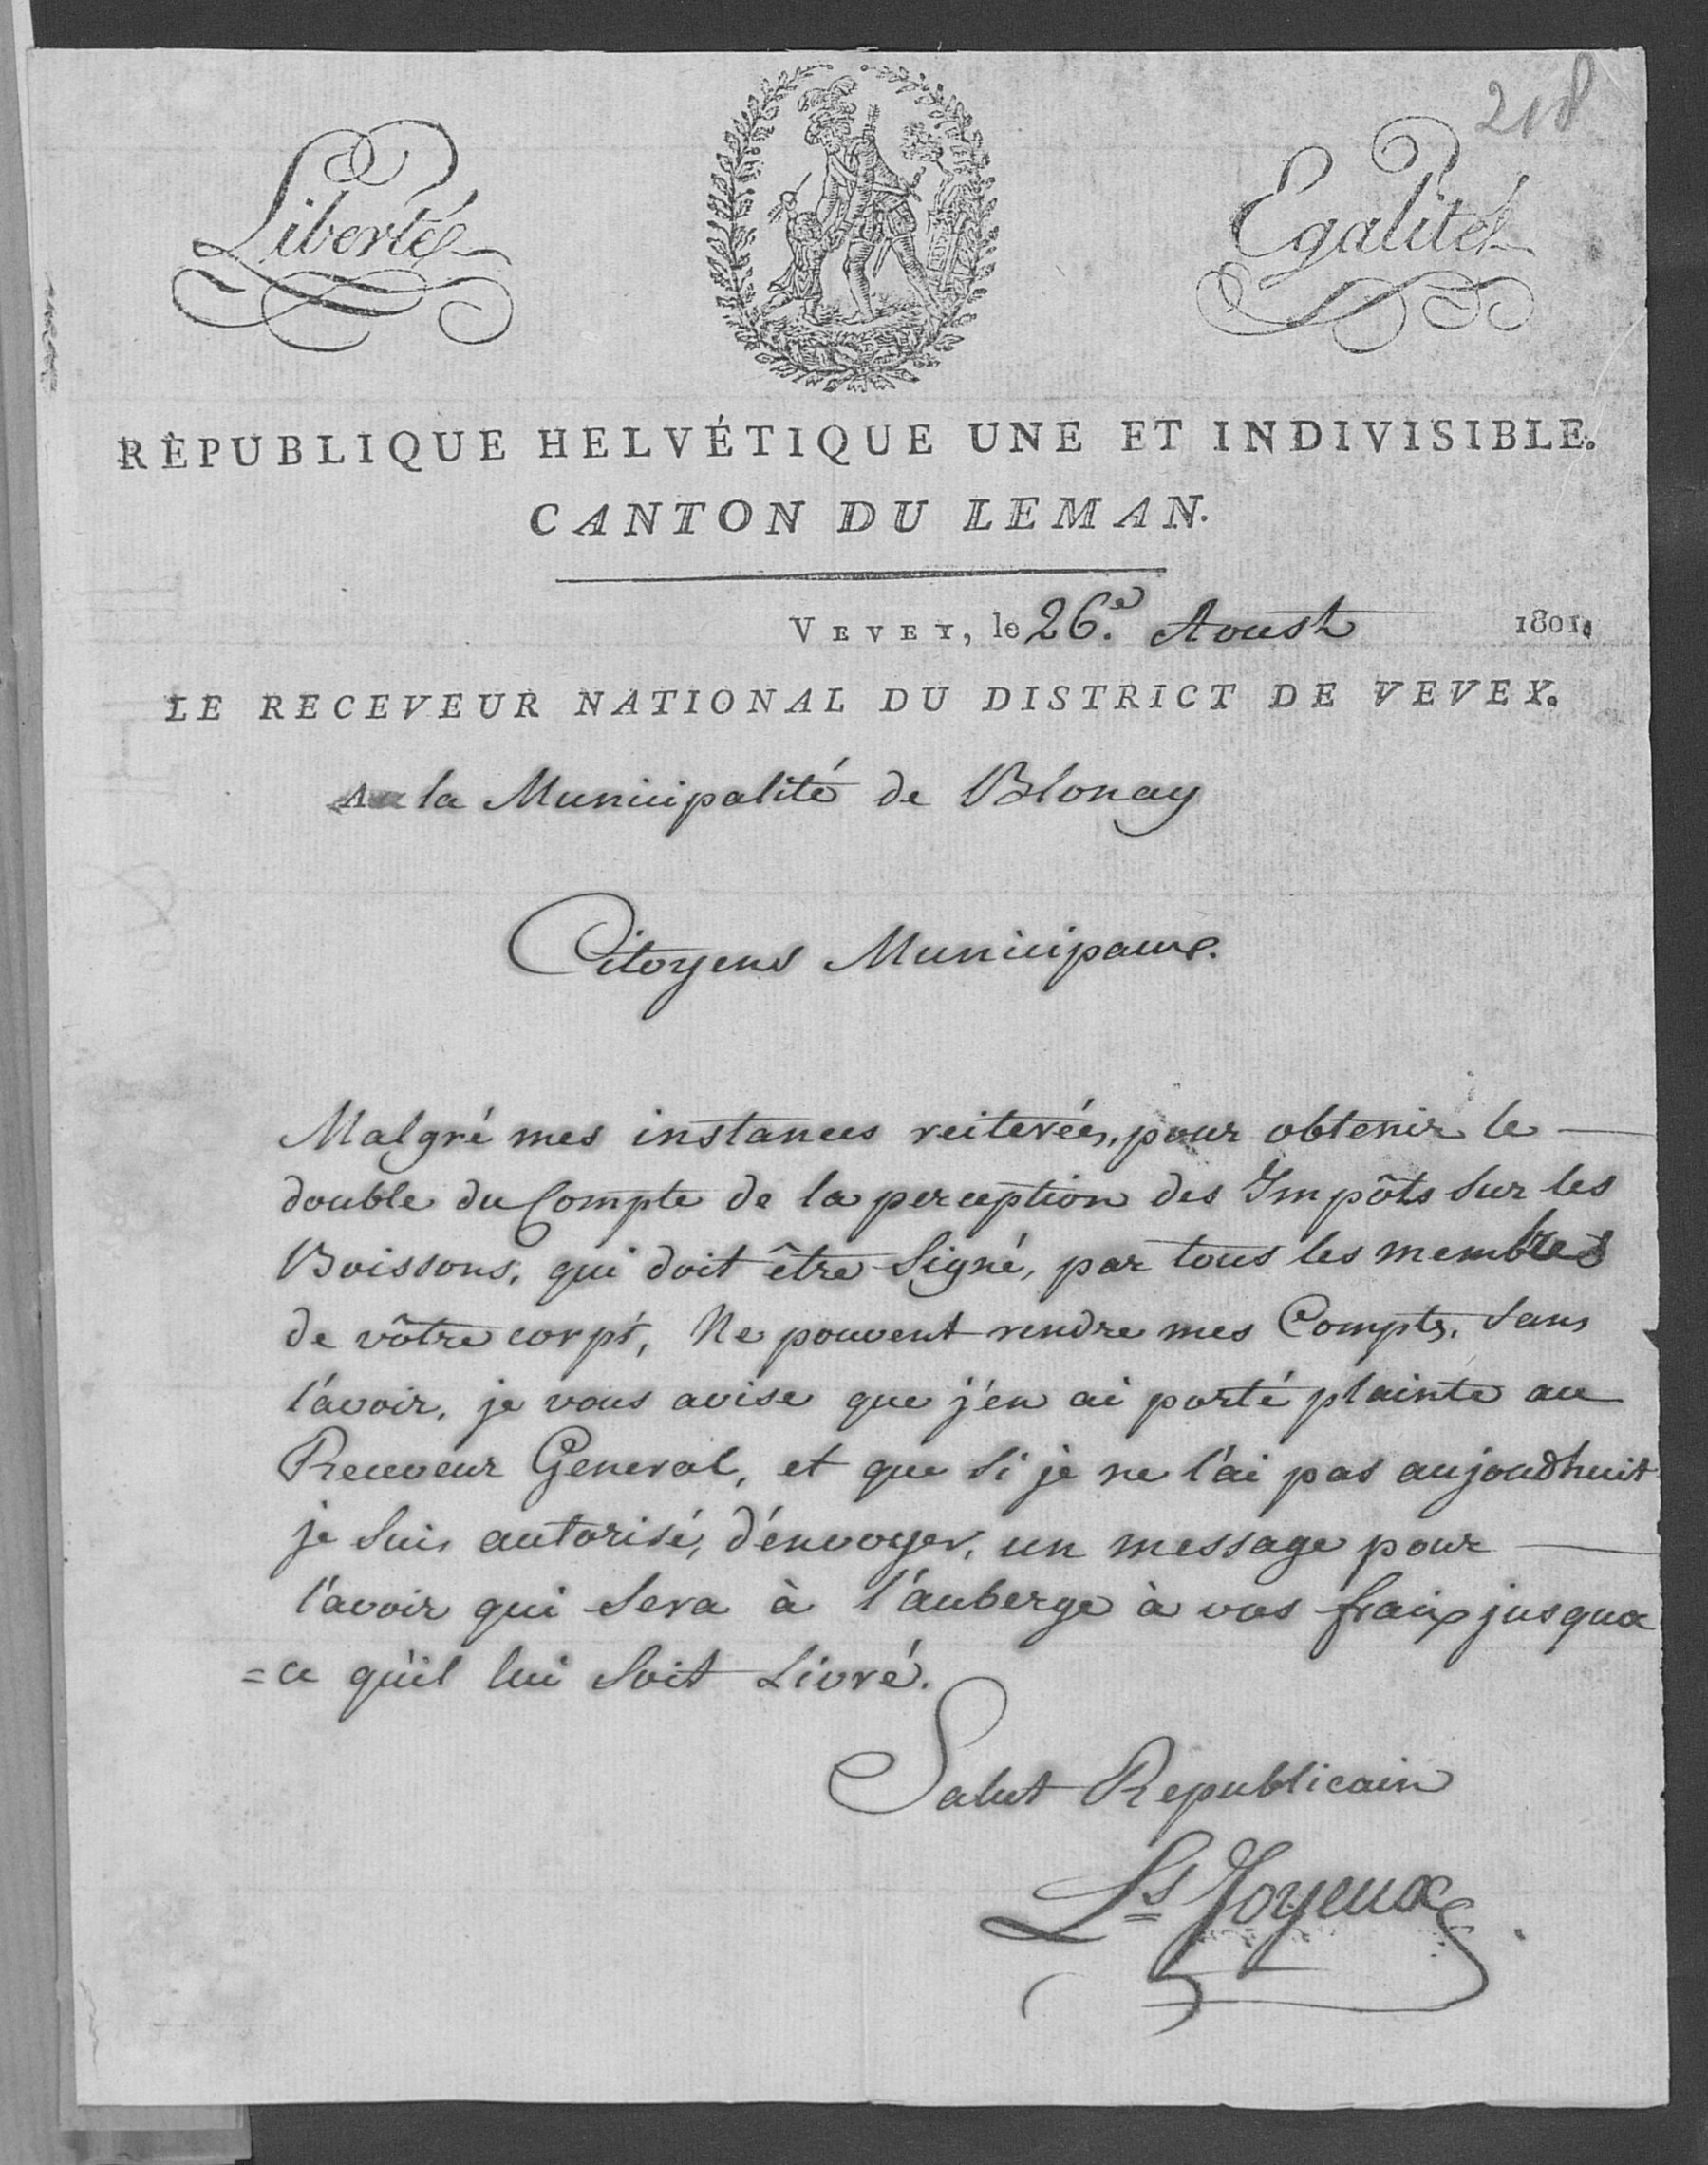 218
Liberté
Egalité
RÉPUBLIQUE HELVÉTIQUE UNE ET INDIVISIBLE.
CANTON DU LEMAN.
VEVEY, le 26.e Aoust 1801.
LE RECEVEUR NATIONAL DU DISTRICT DE VEVEY.
A la Municipalité de Blonay
Citoyens Municipaux.
Malgré mes instances reiterées, pour obtenir le
double du Compte de la perception des Impôts sur les
Boissons, qui doit être Signé, par tous les membres
de vôtre corps, Ne pouvent rendre mes Compts, sans
l'avoir, je vous avise que j'en ai porté plainte au
Receveur General, et que si je ne l'ai pas aujoudhuit
je suis autorisé, d'énvoyer, un message pour
l'avoir qui sera à l'auberge à vos fraix jusqua
=ce qu'il lui soit Livré.
Salut Republicain
Ls Joyeux